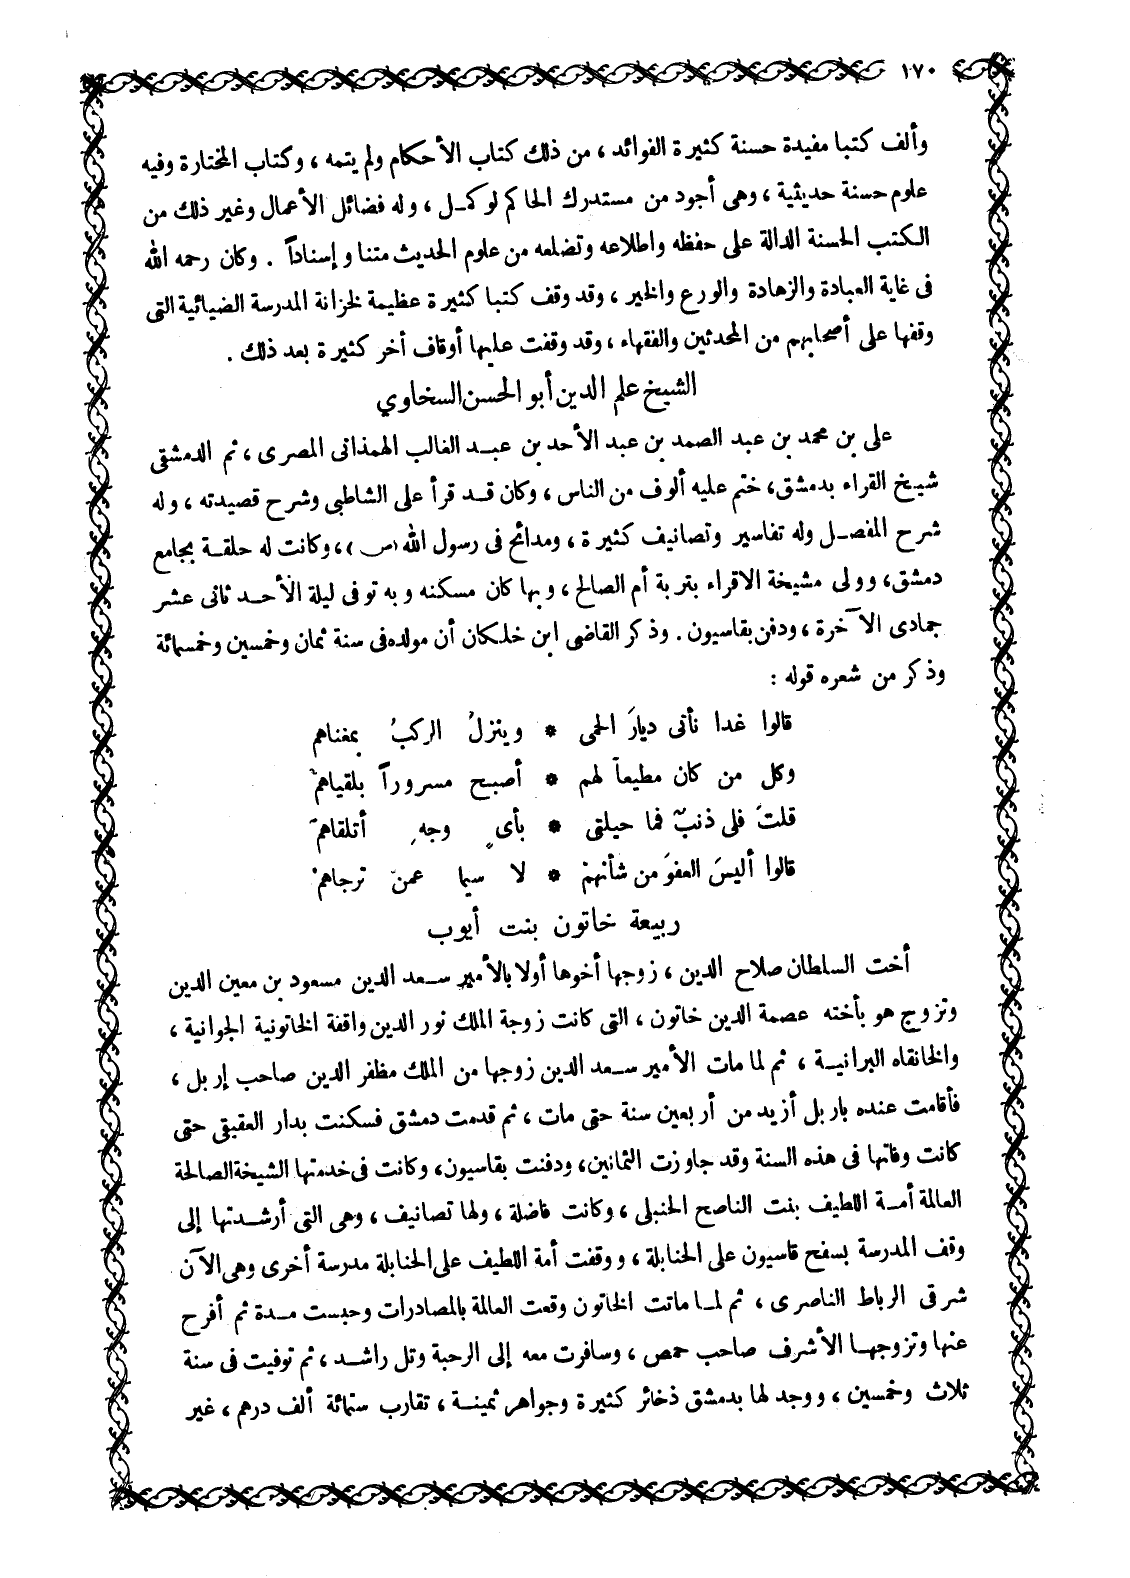 ١٧٠
وألف كتبا مفيدة حسنة كثيرة الفوائد ، من ذلك كتاب الأحكام ولم يتمه ، وكتاب المختارة وفيه
علوم حسنة حديثية ، وهى أجود من مستدرك الحاكم لو كمل ، وله فضائل الأعمال وغير ذلك من
الكتب الحسنة الدالة على حفظه واطلاعه وتضلعه من علوم الحديث متنا وإسناداً . وكان رحمه الله
فى غاية العبادة والزهادة والورع والخير ، وقد وقف كتبا كثيرة عظيمة لخزانة المدرسة الضيائية التى
وقفها على أصحابهم من المحدثين والفقهاء ، وقد وقفت عليها أوقاف أخر كثيرة بعد ذلك .
الشيخ علم الدين أبو الحسن السخاوي
على بن محمد بن عبد الصمد بن عبد الأحد بن عبد الغالب الهمذانى المصرى ، ثم الدمشقى
شيخ القراء بدمشق، ختم عليه ألوف من الناس ، وكان قد قرأ على الشاطبى وشرح قصيدته ، وله
شرح المفصل وله تفاسير وتصانيف كثيرة ، ومدائح فى رسول الله (ص) ، وكانت له حلقة بجامع
دمشق، وولى مشيخة الاقراء بتربة أم الصالح ، وبها كان مسكنه وبه توفى ليلة الأحد ثانى عشر
جمادى الآخرة ، ودفن بقاسيون . وذكر القاضى ابن خلكان أن مولده فى سنة ثمان وخمسين وخمسمائة
وذكر من شعره قوله :
قالوا غدا نأتى ديارَ الحمى * وينزلُ الركبُ بمغناهم
وكل من كان مطيعاً لهم * أصبح مسروراً بلقياهمْ
قلتَ فلى ذنبٌ فما حيلتى * بأىِ وجهِ أتلقاهمْ
قالوا أليسَ العفوَ من شأنهمْ * لا سيما عمنْ ترجاهمْ
ربيعة خاتون بنت أيوب
أخت السلطان صلاح الدين ، زوجها أخوها أولا بالأمير سعد الدين مسعود بن معين الدين
وتزوج هو بأخته عصمة الدين خاتون ، التى كانت زوجة الملك نور الدين واقفة الخاتونية الجوانية ،
والخانقاه البرانية ، ثم لما مات الأمير سعد الدين زوجها من الملك مظفر الدين صاحب إربل ،
فأقامت عنده باربل أزيد من أربعين سنة حتى مات ، ثم قدمت دمشق فسكنت بدار العقيقى حتى
كانت وفاتها فى هذه السنة وقد جاوزت الثمانين، ودفنت بقاسيون، وكانت فى خدمتها الشيخة الصالحة
العالمة أمة اللطيف بنت الناصح الحنبلى ، وكانت فاضلة ، ولها تصانيف ، وهى التى أرشدتها إلى
وقف المدرسة بسفح قاسيون على الحنابلة ، ووقفت أمة اللطيف على الحنابلة مدرسة أخرى وهى الآن
شرقى الرباط الناصرى ، ثم لما ماتت الخاتون وقعت العالمة بالمصادرات وحبست مدة ثم أفرح
عنها وتزوجها الأشرف صاحب حمص ، وسافرت معه إلى الرحبة وتل راشد ، ثم توفيت فى سنة
ثلاث وخمسين ، ووجد لها بدمشق ذخائر كثيرة وجواهر ثمينة ، تقارب ستمائة ألف درهم ، غير